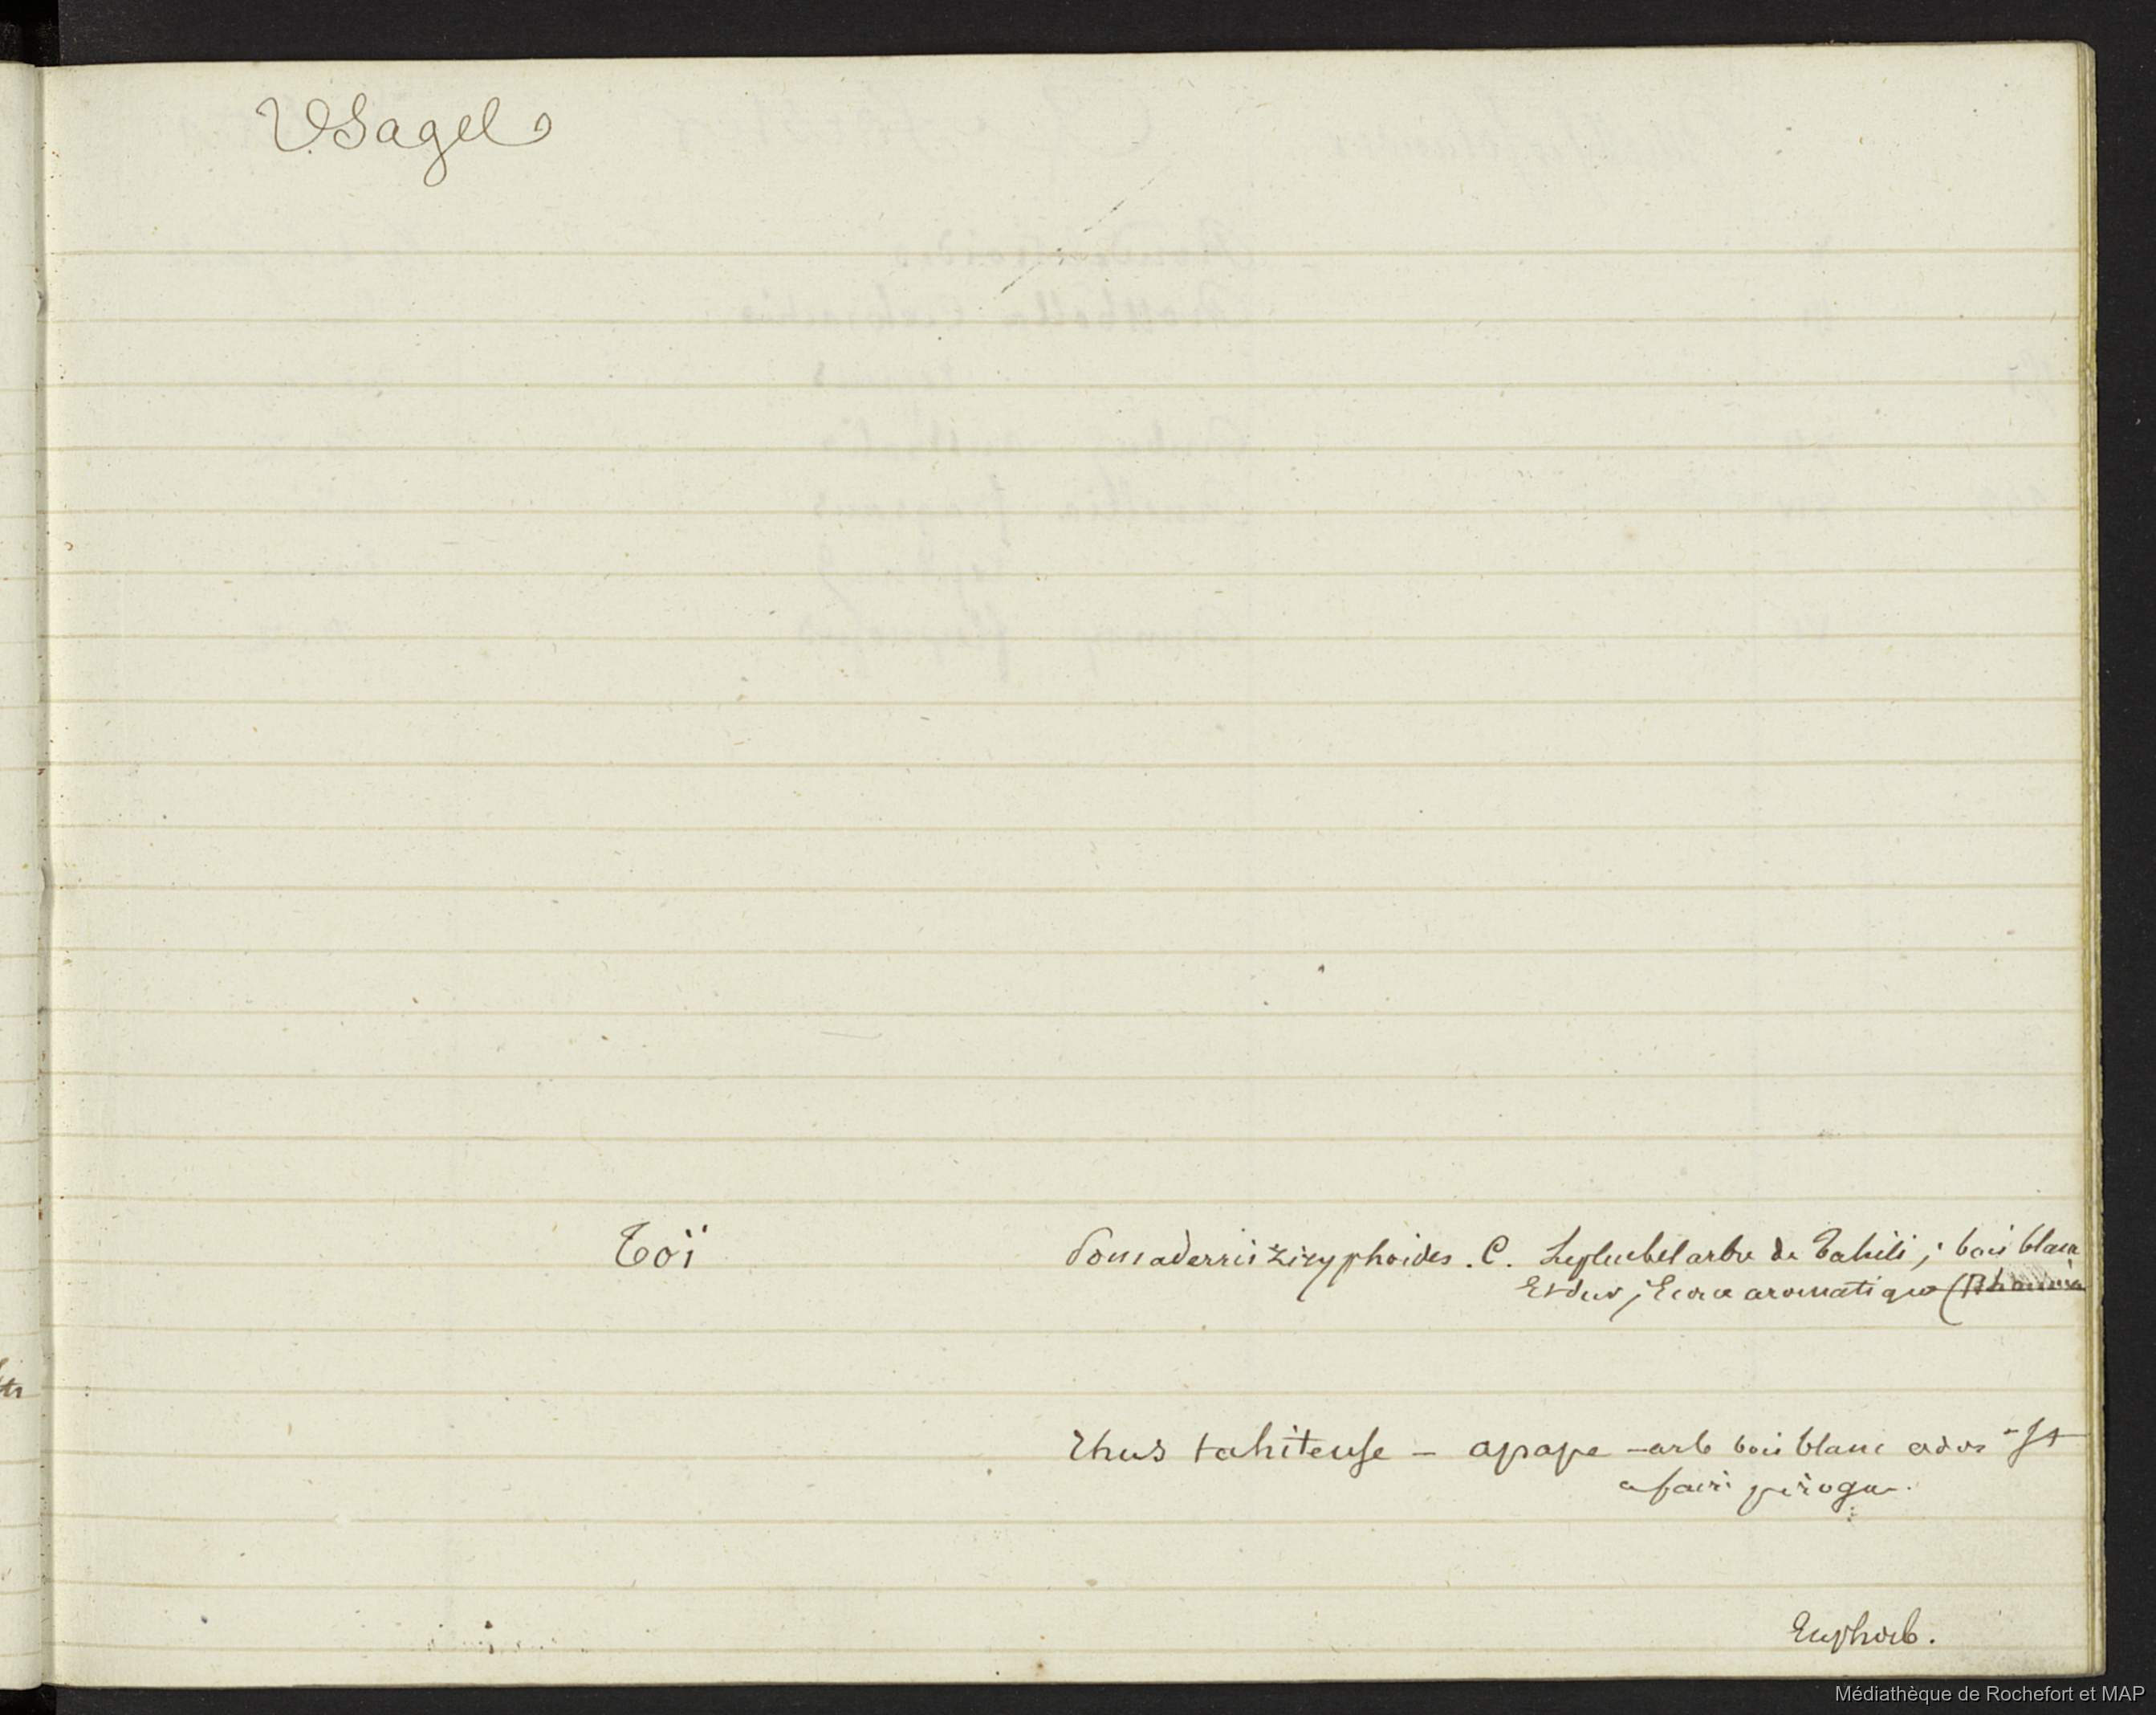 Usages
Toï Pomaderris zizyphoides. C. Le plus bel arbre de Tahiti; bois blanc
Et dur; Ecorce aromatique (Rhamn
Rhus tahitense - apape - arb bois blanc
a faire pirogue.
Euphorb.
Médiathèque de Rochefort et MAP